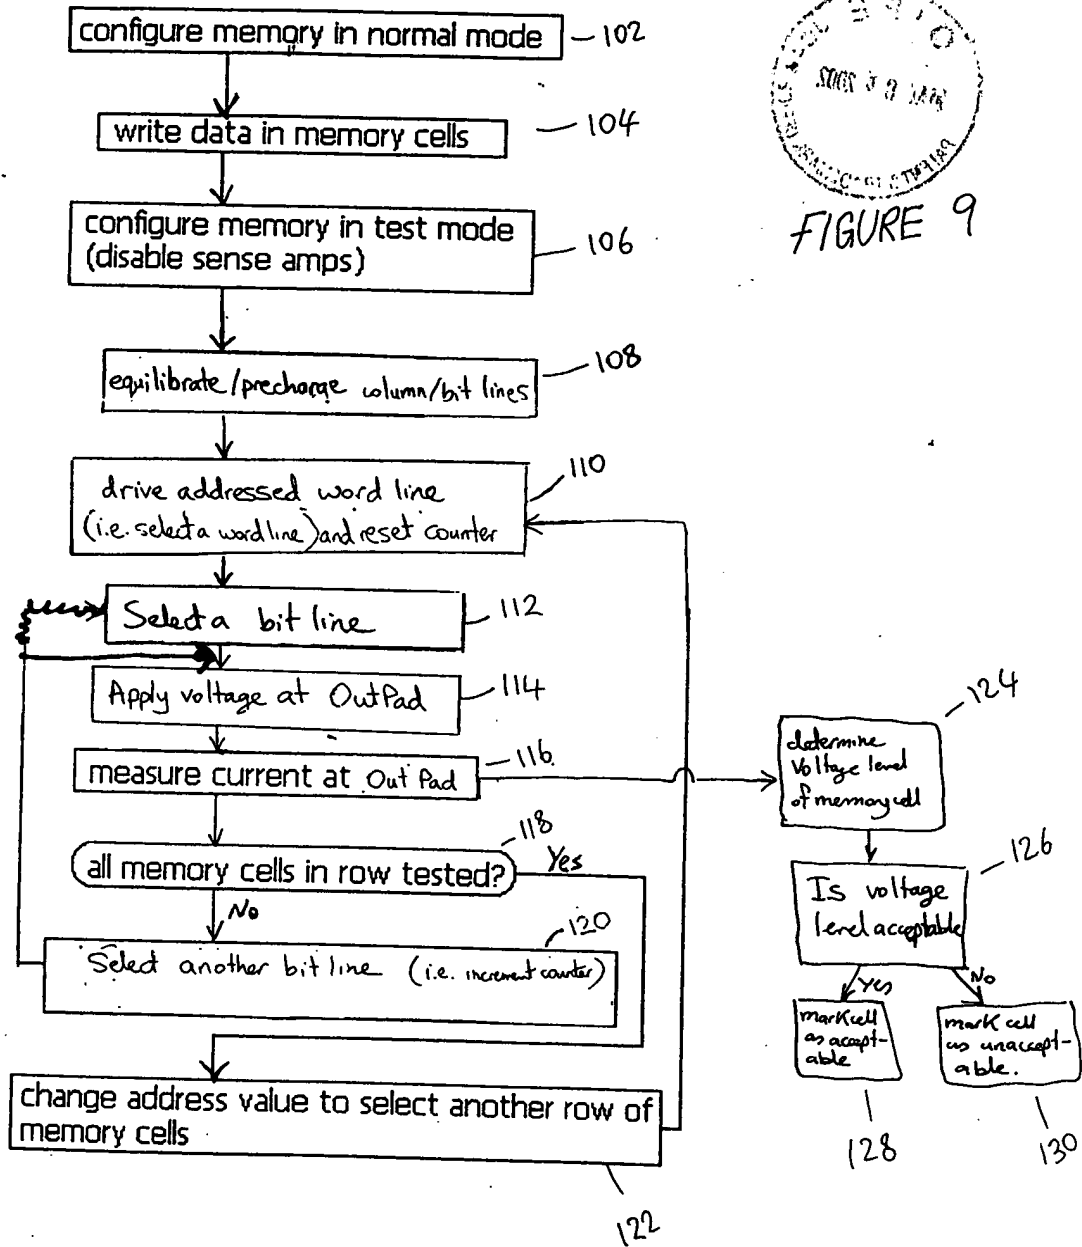 configure memory in normal mode
102
write data in memory cells
104
configure memory in test mode
(disable sense amps)
106
FIGURE 9
equilibrate/precharge column/bit lines
108
drive addressed word line
(i.e. select a wordline) and reset counter
110
Select a bit line
112
Apply voltage at OutPad
114
measure current at Out Pad
116
all memory cells in row tested?
118
Yes
No
Select another bit line (i.e. increment counter)
120
change address value to select another row of
memory cells
122
determine
voltage level
of memory cell
124
Is voltage
level acceptable
126
Yes
No
mark cell
as accept-
able
128
mark cell
as unaccept-
able.
130